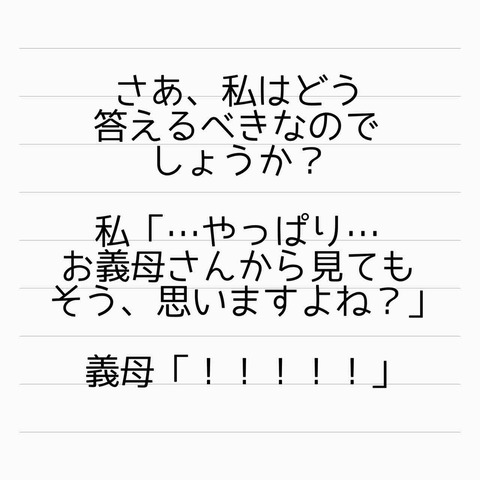 さあ、私はどう
答えるべきなので
しょうか？
私「…やっぱり…
お義母さんから見ても
そう、思いますよね？」
義母「！！！！！」